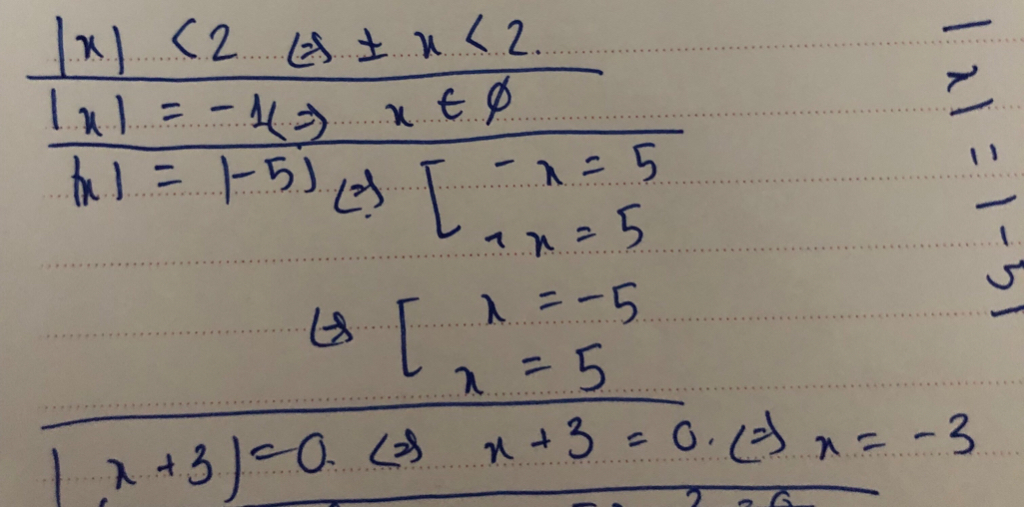 |x| < 2 ⇔ ± x < 2.
|x| = -1 ⇔ x ∈ ∅
|x| = |-5| ⇔ [ - x = 5
+ x = 5
⇔ [ x = -5
x = 5
|x + 3| = 0. ⇔ x + 3 = 0. ⇔ x = -3
|x| = |-5|